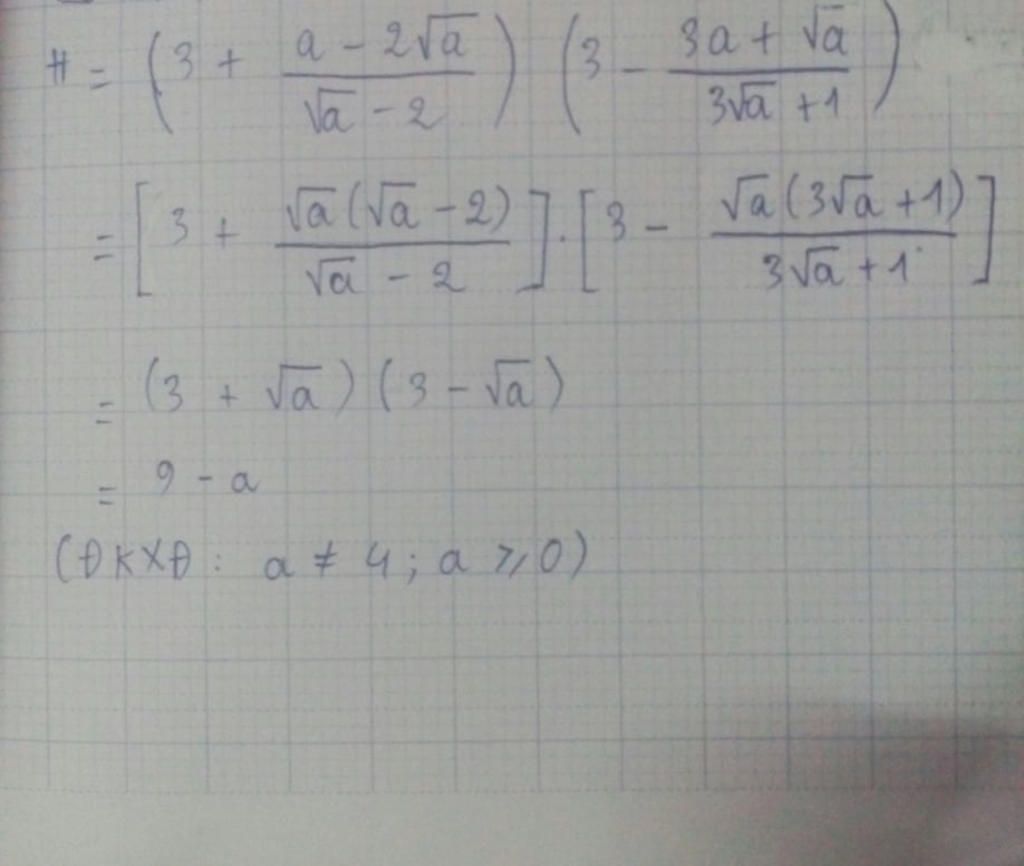 H = (3 + (a - 2√a)/(√a - 2)) (3 - (3a + √a)/(3√a + 1))
= [3 + √a(√a - 2)/(√a - 2)] . [3 - √a(3√a + 1)/(3√a + 1)]
= (3 + √a)(3 - √a)
= 9 - a
(ĐKXĐ: a ≠ 4; a ⩾ 0)